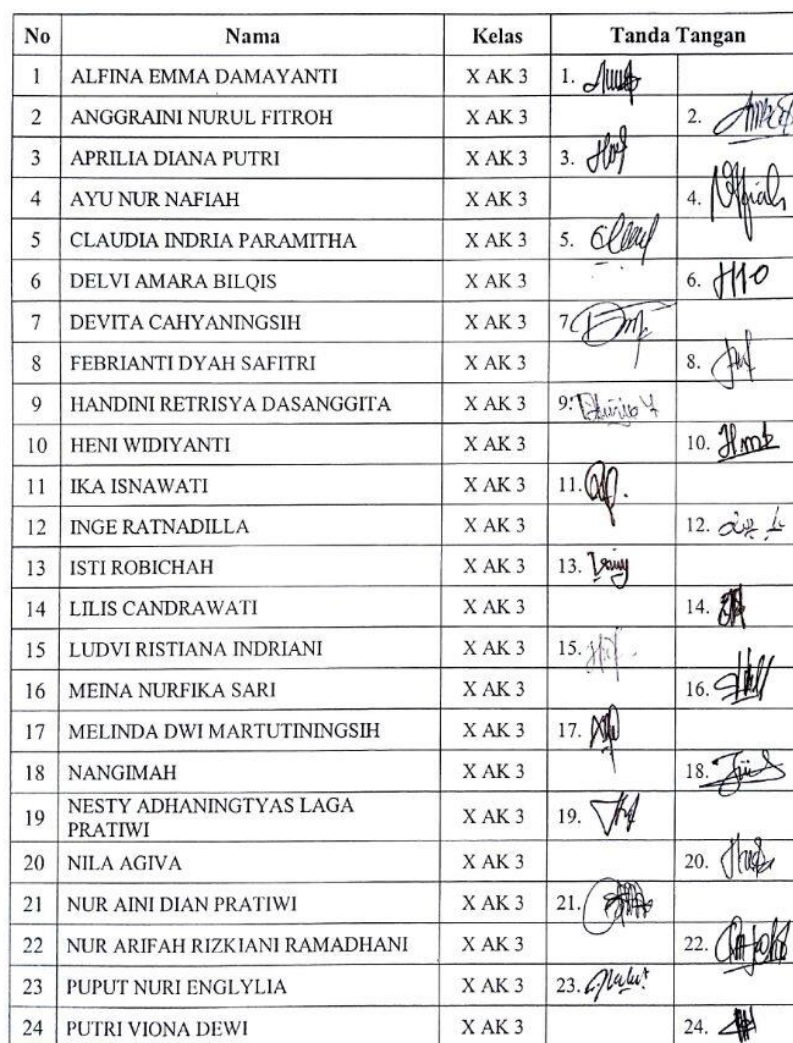 No Nama Kelas Tanda Tangan
1 ALFINA EMMA DAMAYANTI X AK 3 1.
2 ANGGRAINI NURUL FITROH X AK 3 2.
3 APRILIA DIANA PUTRI X AK 3 3.
4 AYU NUR NAFIAH X AK 3 4.
5 CLAUDIA INDRIA PARAMITHA X AK 3 5.
6 DELVI AMARA BILQIS X AK 3 6.
7 DEVITA CAHYANINGSIH X AK 3 7
8 FEBRIANTI DYAH SAFITRI X AK 3 8.
9 HANDINI RETRISYA DASANGGITA X AK 3 9.
10 HENI WIDIYANTI X AK 3 10.
11 IKA ISNAWATI X AK 3 11.
12 INGE RATNADILLA X AK 3 12.
13 ISTI ROBICHAH X AK 3 13.
14 LILIS CANDRAWATI X AK 3 14.
15 LUDVI RISTIANA INDRIANI X AK 3 15.
16 MEINA NURFIKA SARI X AK 3 16.
17 MELINDA DWI MARTUTININGSIH X AK 3 17.
18 NANGIMAH X AK 3 18.
19 NESTY ADHANINGTYAS LAGA
PRATIWI X AK 3 19.
20 NILA AGIVA X AK 3 20.
21 NUR AINI DIAN PRATIWI X AK 3 21.
22 NUR ARIFAH RIZKIANI RAMADHANI X AK 3 22.
23 PUPUT NURI ENGLYLIA X AK 3 23.
24 PUTRI VIONA DEWI X AK 3 24.